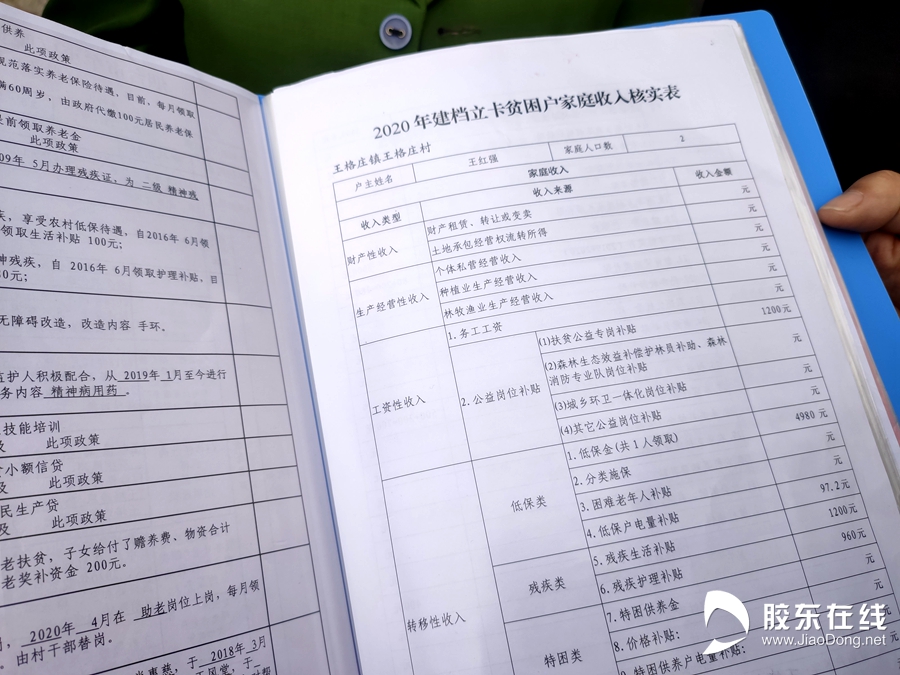 供养
此项政策
规范落实养老保险待遇，目前，每月领取
满60周岁，由政府代缴100元居民养老保
提前领取养老金
此项政策
09年 5月办理残疾证，为 二级 精神残
疾，享受农村低保待遇，自2016年 6月领
领取生活补贴 100元；
神残疾，自 2016年 6月领取护理补贴，目
80元；
无障碍改造，改造内容 手环。
监护人积极配合，从 2019年 1月至今进行
务内容 精神病用药 。
技能培训
及 此项政策
小额信贷
及 此项政策
民生产贷
及 此项政策
老扶贫，子女给付了赡养费、物资合计
老奖补资金 200元。
，2020年 4月在 助老岗位上岗，每月领
，由村干部替岗。
慈，于 2018年 3月
2020 年建档立卡贫困户家庭收入核实表
王格庄镇王格庄村
户主姓名 王红强 家庭人口数 2
家庭收入
收入类型 收入来源 收入金额
财产性收入 财产租赁、转让或变卖 元
土地承包经营权流转所得 元
生产经营性收入 个体私营经营收入 元
种植业生产经营收入 元
林牧渔业生产经营收入 元
工资性收入 1.务工工资 元
2.公益岗位补贴 (1)扶贫公益专岗补贴 1200元
(2)森林生态效益补偿护林员补助、森林
消防专业队岗位补贴 元
(3)城乡环卫一体化岗位补贴 元
(4)其它公益岗位补贴 元
转移性收入 低保类 1.低保金(共1人领取) 4980 元
2.分类施保 元
3.困难老年人补贴 元
4.低保户电量补贴 97.2元
残疾类 5.残疾生活补贴 1200元
6.残疾护理补贴 960元
特困类 7.特困供养金 元
8.价格补贴： 元
9.特困供养户电量补贴：
胶东在线
www.JiaoDong.net